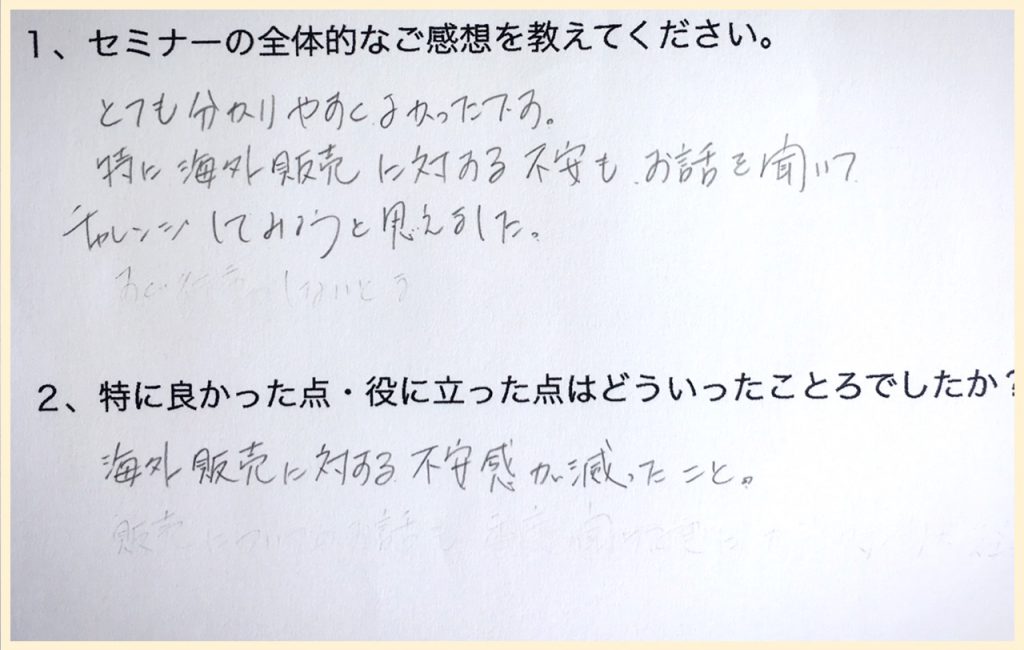 1、セミナーの全体的なご感想を教えてください。
とても分かりやすくよかったです。
特に海外販売に対する不安も、お話を聞いて
チャレンジしてみようと思えました。
2、特に良かった点・役に立った点はどういったことろでしたか?
海外販売に対する不安感が減ったこと。
販売についてのお話も